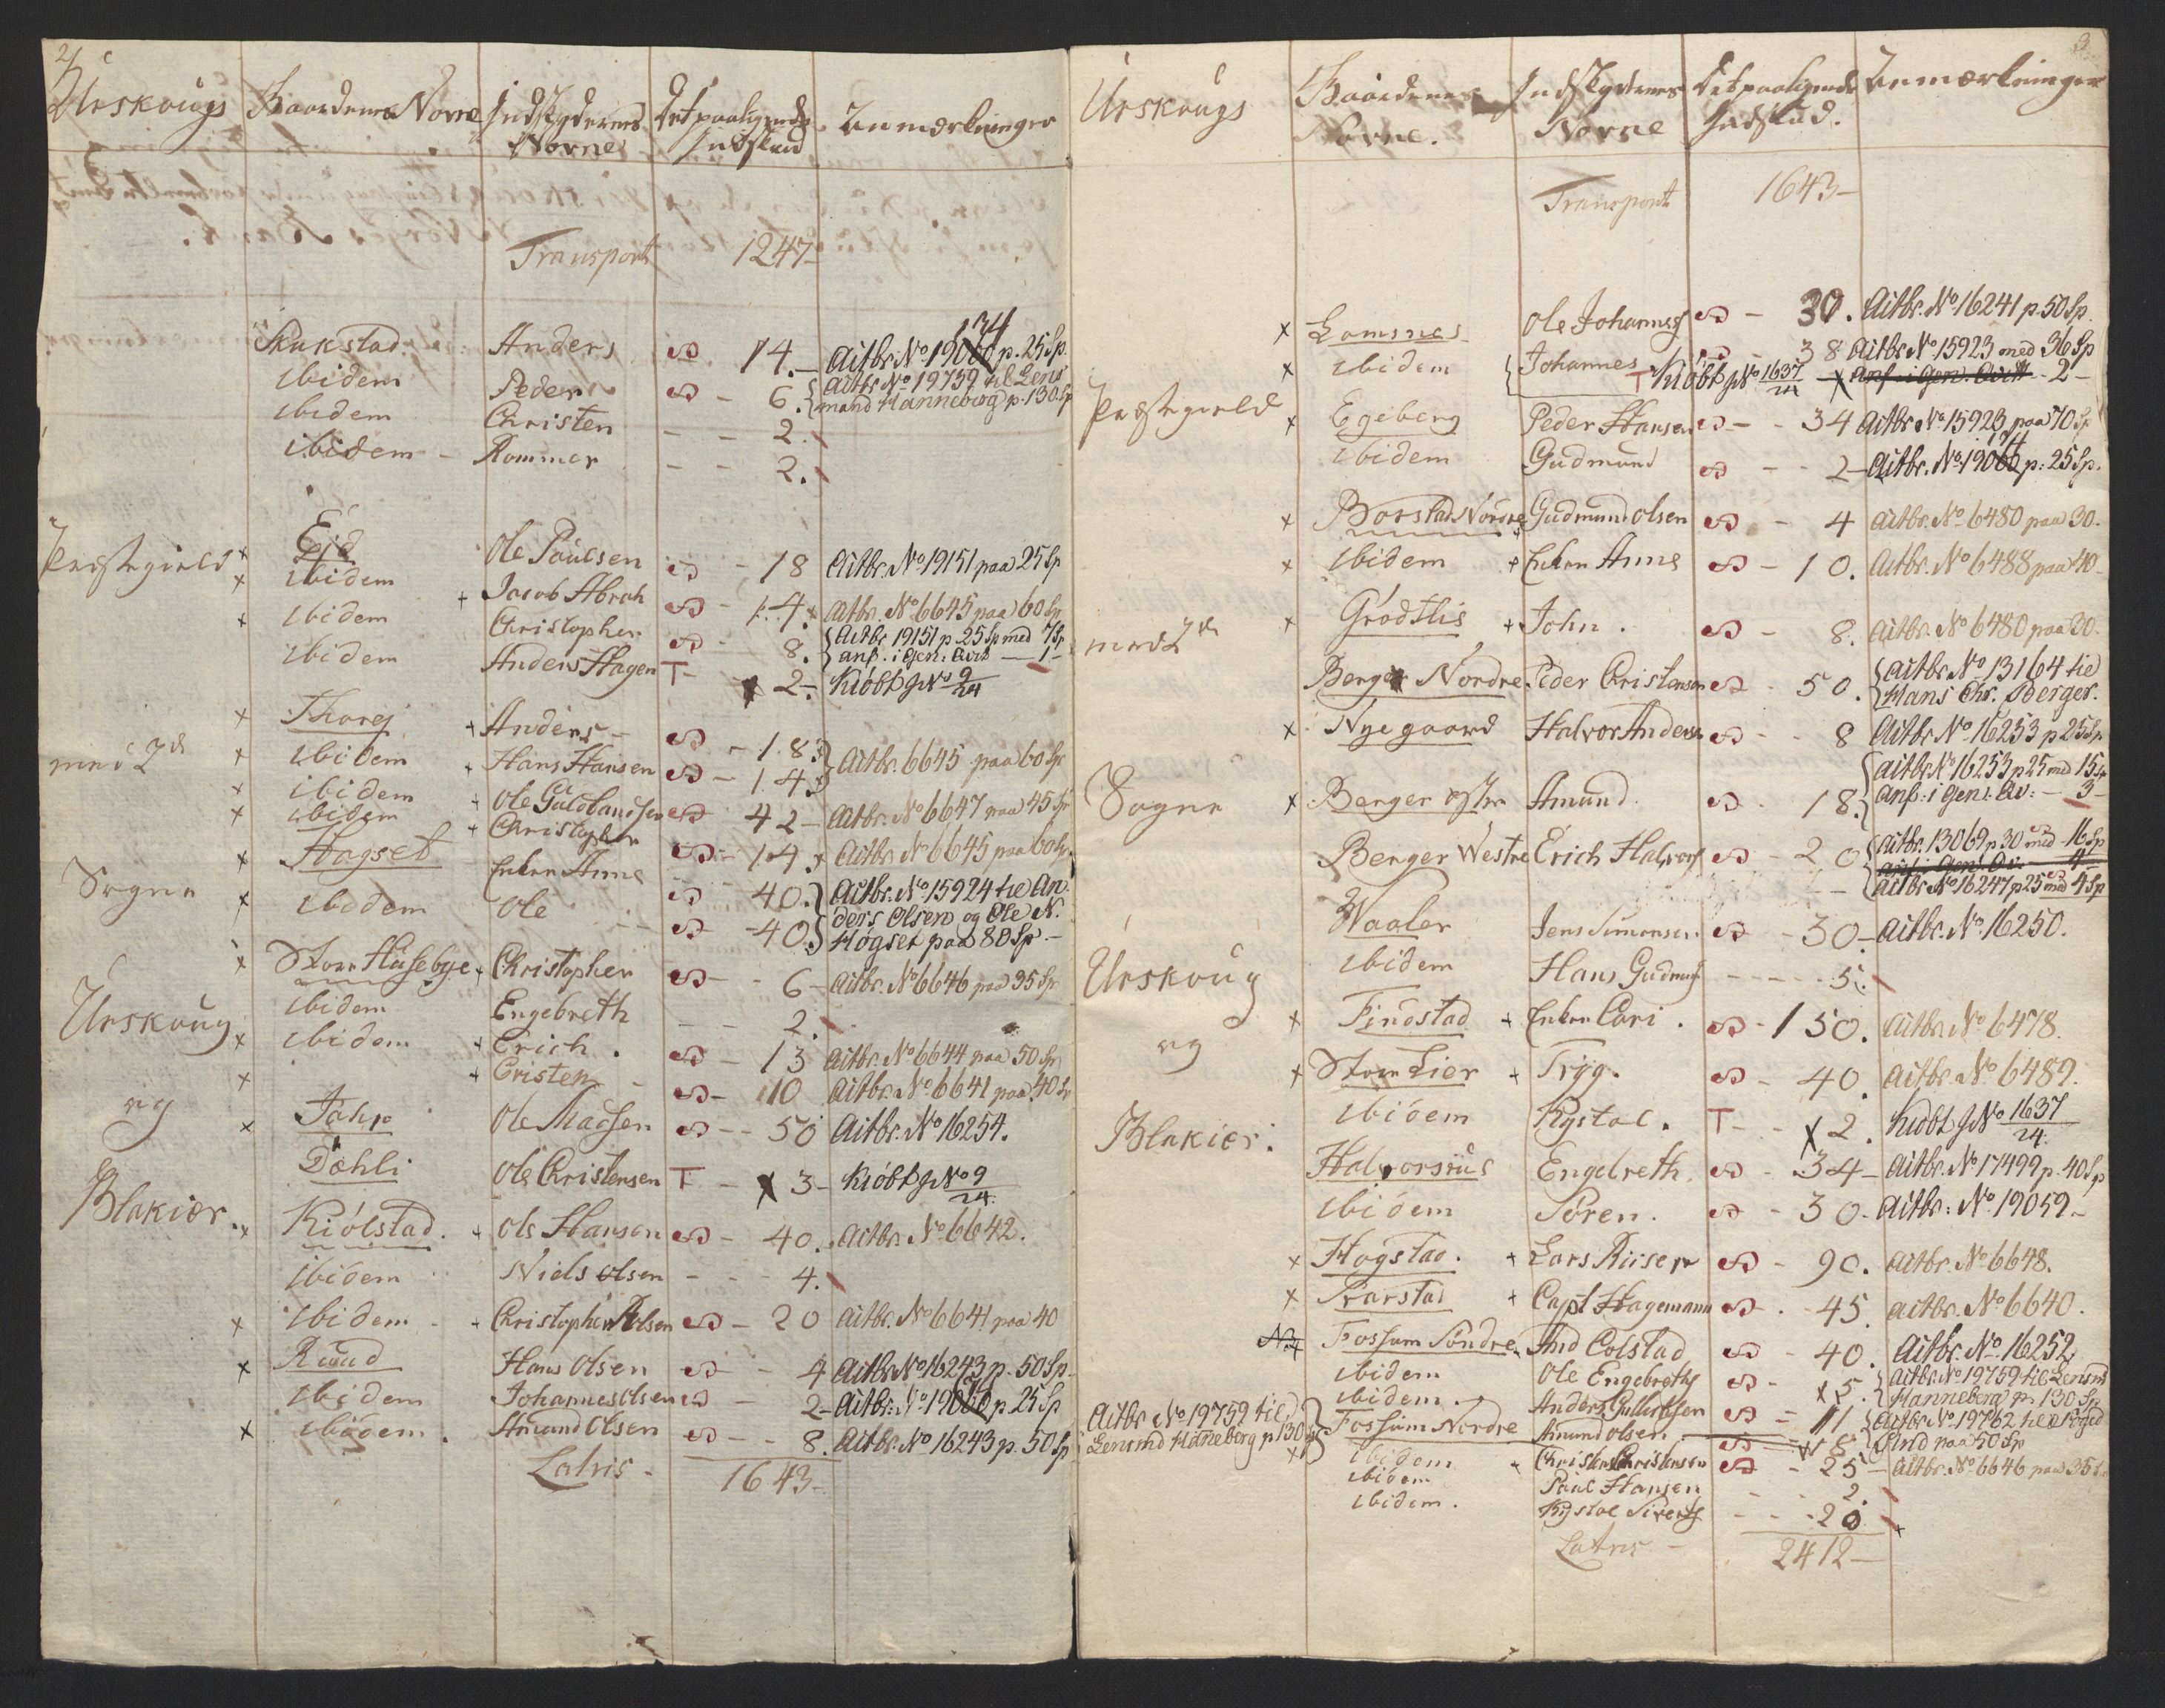 2/
Urskougs Gaardenes Navne Indskydernes Navne Det paaligende Indskud Anmærkninger
Transport 1247-
Skukstad. Anders 14.- Actbr. No 19034 p. 25 Sp.
ibidem Peder - 6. { Actbr. No 19759 til Lens
ibidem Christen - - 2. mand Hanneborg p. 130 Sp
ibidem - Rommer - - 2.
Præstegield x Eid Ole Paulsen - 18 Actbr. No 19151 paa 25 Sp
x ibidem + Jacob Abrah - 14. x Actbr. No 6645 paa 60 Sp
x ibidem Christopher - 8. { Actbr 19151 p. 25 Sp med 7 Sp
anf. i Gen: Qvit - 1-
ibidem Anders Hagen T- x 2- Kiöbt J No 9/24
med 2de
x Thorej + Anders - - 18. }
x ibidem + Hans Hansen - 14. } Actbr. 6645 paa 60 Sp
x ibidem + Ole Guldbrandsen 42- Actbr. No 6647 paa 45 Sp
x ibidem + Christopher - 14. x Actbr. No 6645 paa 60 Sp
Sogne x Hogset Enken Anne 40. } Actbr. No 15924 til An-
x ibidem Ole - 40. } ders Olsen og Ole N.
Høgset paa 80 Sp.-
x Store Hasebye + Christopher - 6- Actbr. No 6646 paa 35 Sp
ibidem Engebreth - - 2.
Urskoug x ibidem + Erich. - 13 Actbr. No 6644 paa 50 Sp
x + Cristen - 10 Actbr. No 6641 paa 40 Sp
og
x Tahre Ole Madsen - - 50 Actbr. No 16254.
Dæhli Ole Christensen T - x 3- Kiöbt J No 9/24.
Blakier. x Kiölstad. + Ole Hansen - 40. Actbr. No 6642.
ibidem Niels Olsen - - 4.
x ibidem - + Christopher Olsen - 20 Actbr. No 6641 paa 40
x Ruud Hans Olsen - 4 Actbr. No 16243 p. 50 Sp.
ibidem Johannes Olsen 2- Actbr. No 190 p. 25 Sp
x ibidem. Amund Olsen - - 8. Actbr. No 16243 p. 50 Sp
Latris - 1643-
3
Urskougs Gaardenes Navne. Indskydernes Navne Det paaligende Indskud. Anmærkninger
Transport 1643-
x Lomsnes Ole Johannes - 30. Actbr. No 16241 p. 50 Sp.
x ibidem { Johannes 38 Actbr. No 15923 med 36 Sp
T Kiöbt J No 1637/24 x anf. i Gen. Qvitt - 2-
Præstegield
x Egeberg Peder Hansen - - 34 Actbr. No 15923 paa 70 Sp
ibidem Gudmund - - 2- Actbr. No 190 p. 25 Sp.
x Borstad Nordre Gudmund Olsen - 4 Actbr. No 6480 paa 30.
x ibidem + Enken Anne - 10. Actbr. No 6488 paa 40-
med 2de x Grödtlis + John. - 8. Actbr. No 6480 paa 30.
Berger Nordre Peder Christensen - 50. { Actbr. No 13164 til
Hans Chr. Berger.
x Nye gaard Halvor Andersen - - 8 Actbr. No 16253 p 25 Sp
Sogne x Berger östre Amund. - 18. { Actbr. No 16253 p 25 med 15 Sp
anf: i Gen: Qv: - 3-
Berger Westre Erich Halvors - 20 { Actbr. 13069 p 30 med 16 Sp
anf: i Gen: Qv - 4-
Actbr. No 16247 p 25 med 4 Sp
Waaler Jens Simonsen - 30- Actbr. No 16250.
Urskoug ibidem Hans Gudmuns - - - - 5.
x Findstad + Enken Cari. - 150. Actbr. No 6478.
og
x Store Lier + Tryg. - 40. Actbr. No 6489.
ibidem Kystol. T- - x 2. Kiöbt J No 1637/24.
Blakier. Halvorsrus Engebreth. - 34- Actbr. No 17499 p. 40 Sp
ibidem Sören. - 30- Actbr: No 19059.-
x Hogstad. + Lars Riiser - 90. Actbr. No 6648.
x Prarstad + Capt Hagemann - - 45. Actbr. No 6640.
Fossum Söndre And Colstad - 40. Actbr. No 16252
ibidem Ole Engebreths - x 5. { Actbr. No 19759 til Lensmd
Hanneborg p. 130 Sp
ibidem. Anders Gulliksen - 11 { Actbr. No 19762 til
Actbr. No 19759 til Lensmd Haneberg p 130 Sp } Fossum Nordre Amund Olsen. - 8 paa 50 Sp
x ibidem + Christen Christensen - 25- Actbr. No 6646 paa 35 Sp
ibidem Paul Hansen - - 2.
ibidem. Kystol Siverts - - - 20
Latris - 2412-